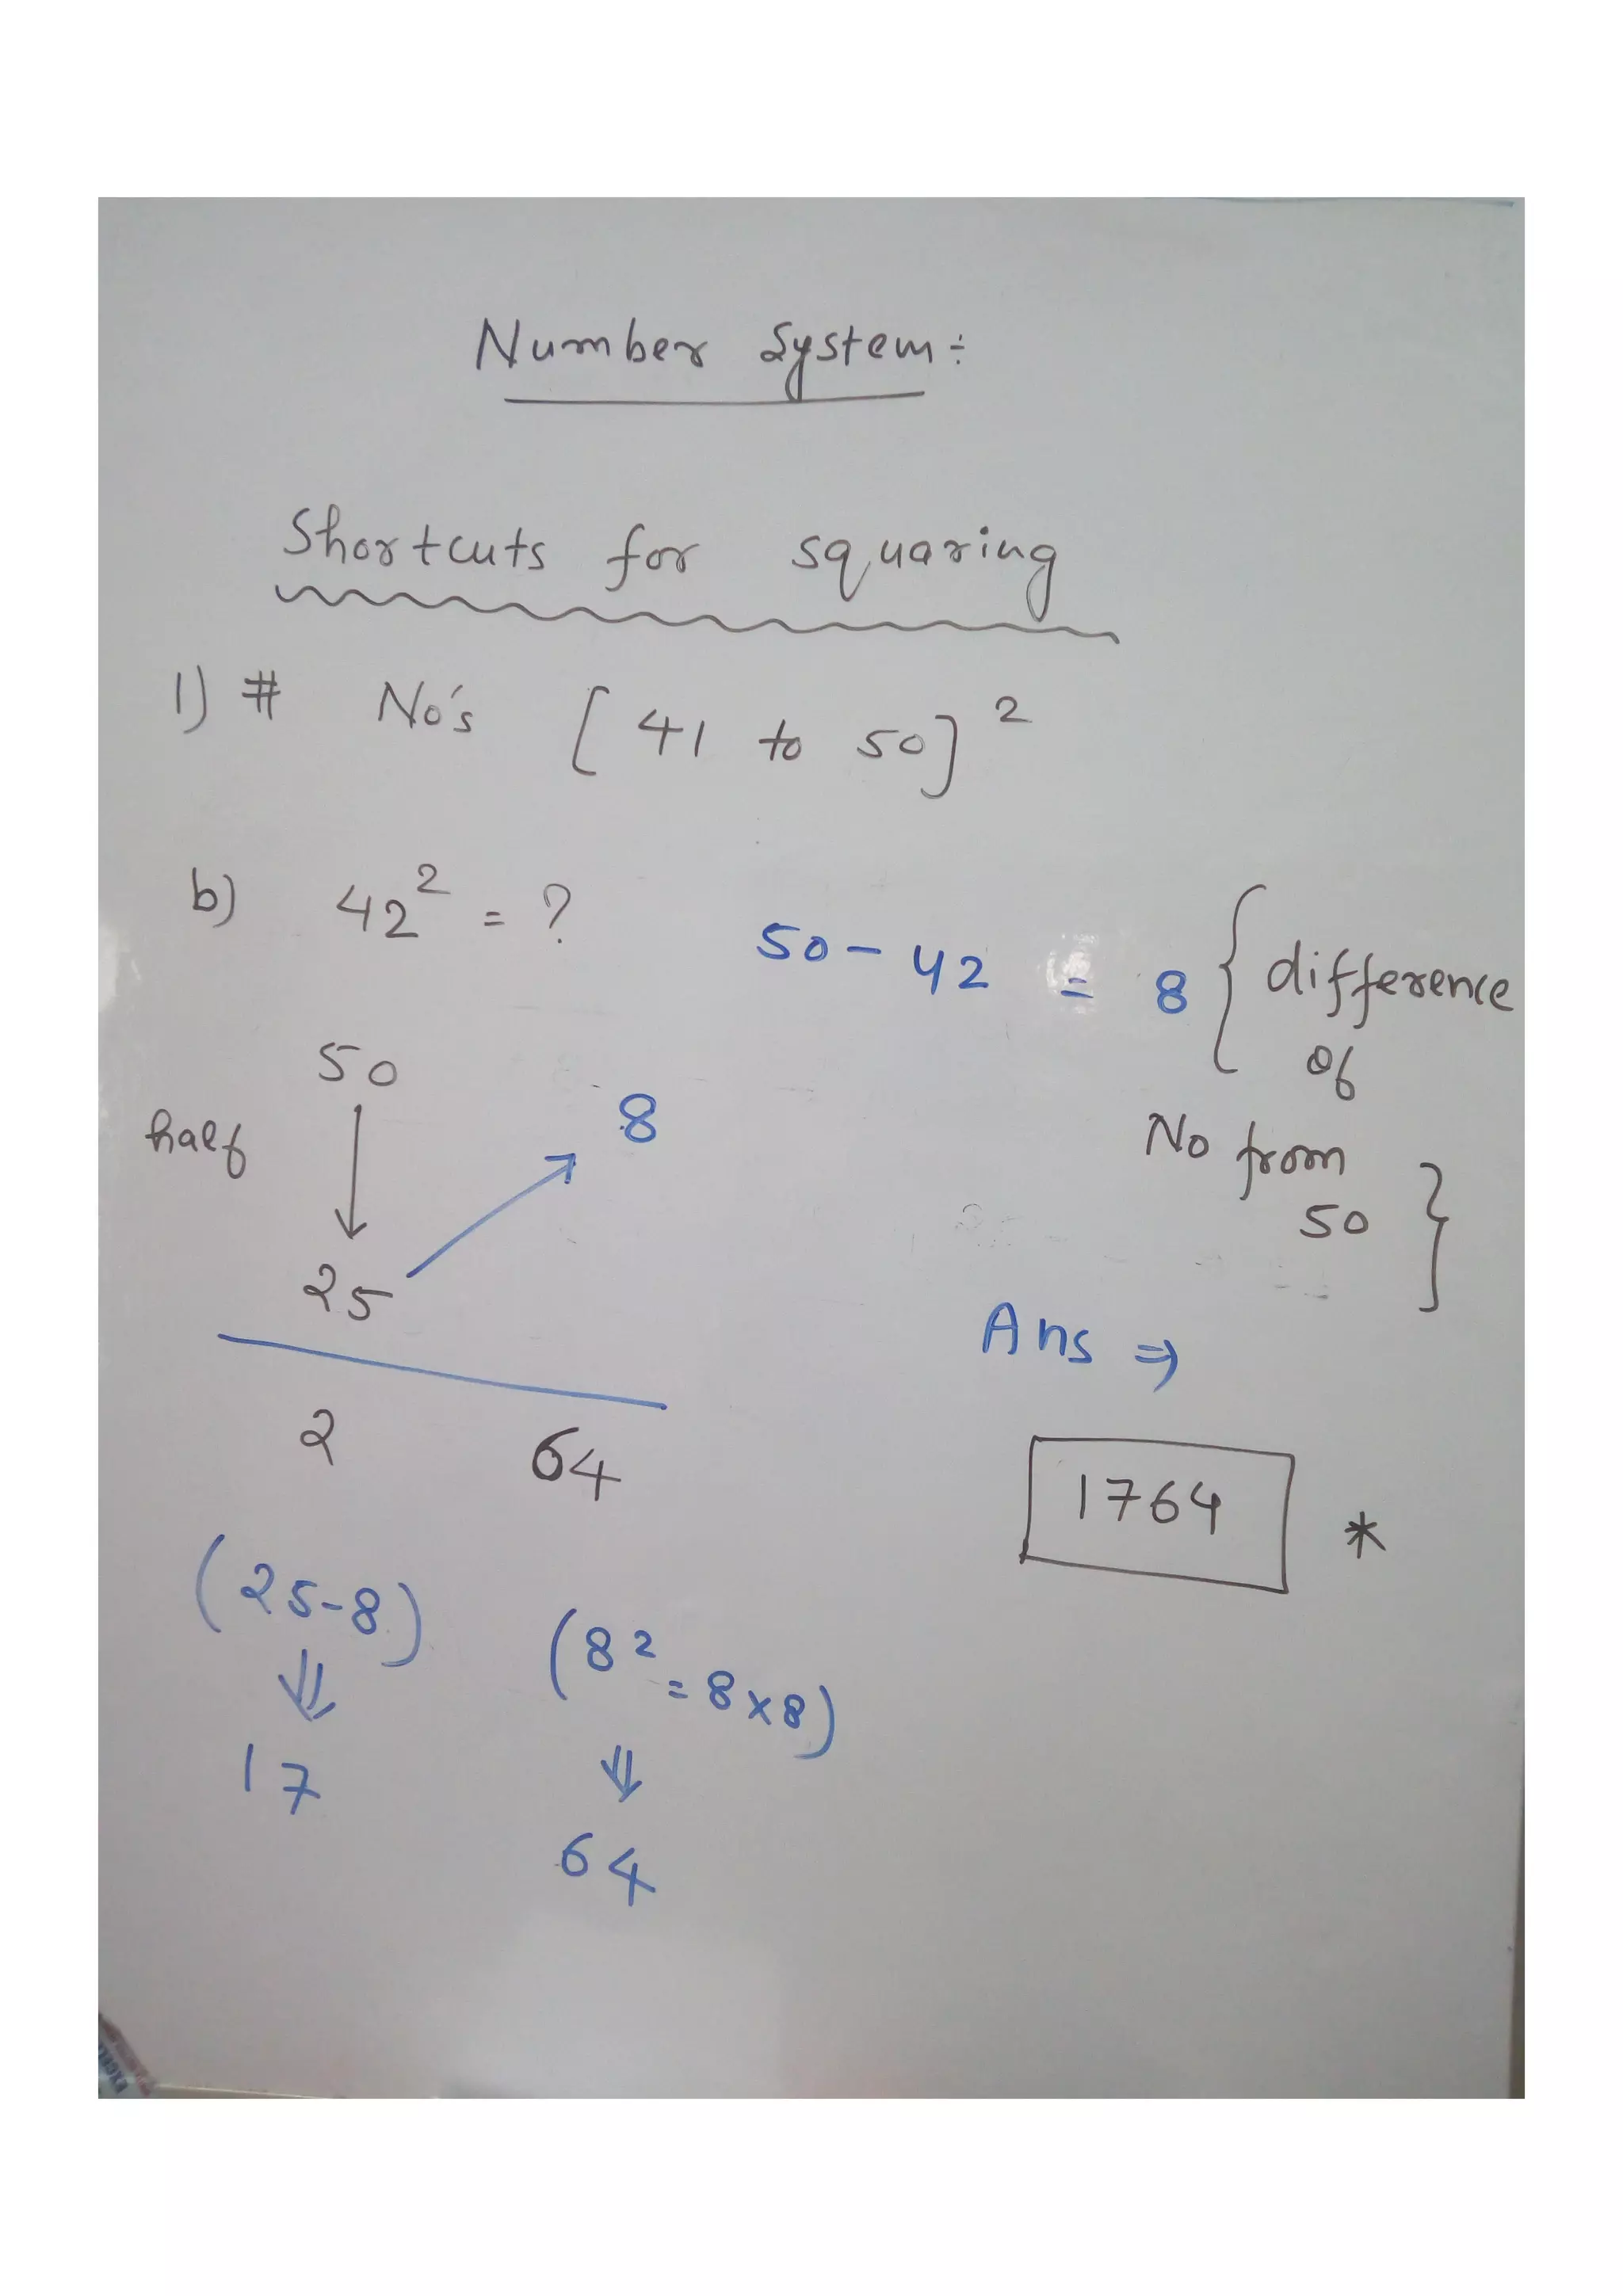 Number System :-
Shortcuts for squaring
1) # No's [ 41 to 50 ]²
b) 42² = ?
50 - 42 = 8 { difference
of
No from
50 }
50
half
8
25
2 64
(25-8)
17
(8² = 8x8)
64
Ans ⇒
1764 *